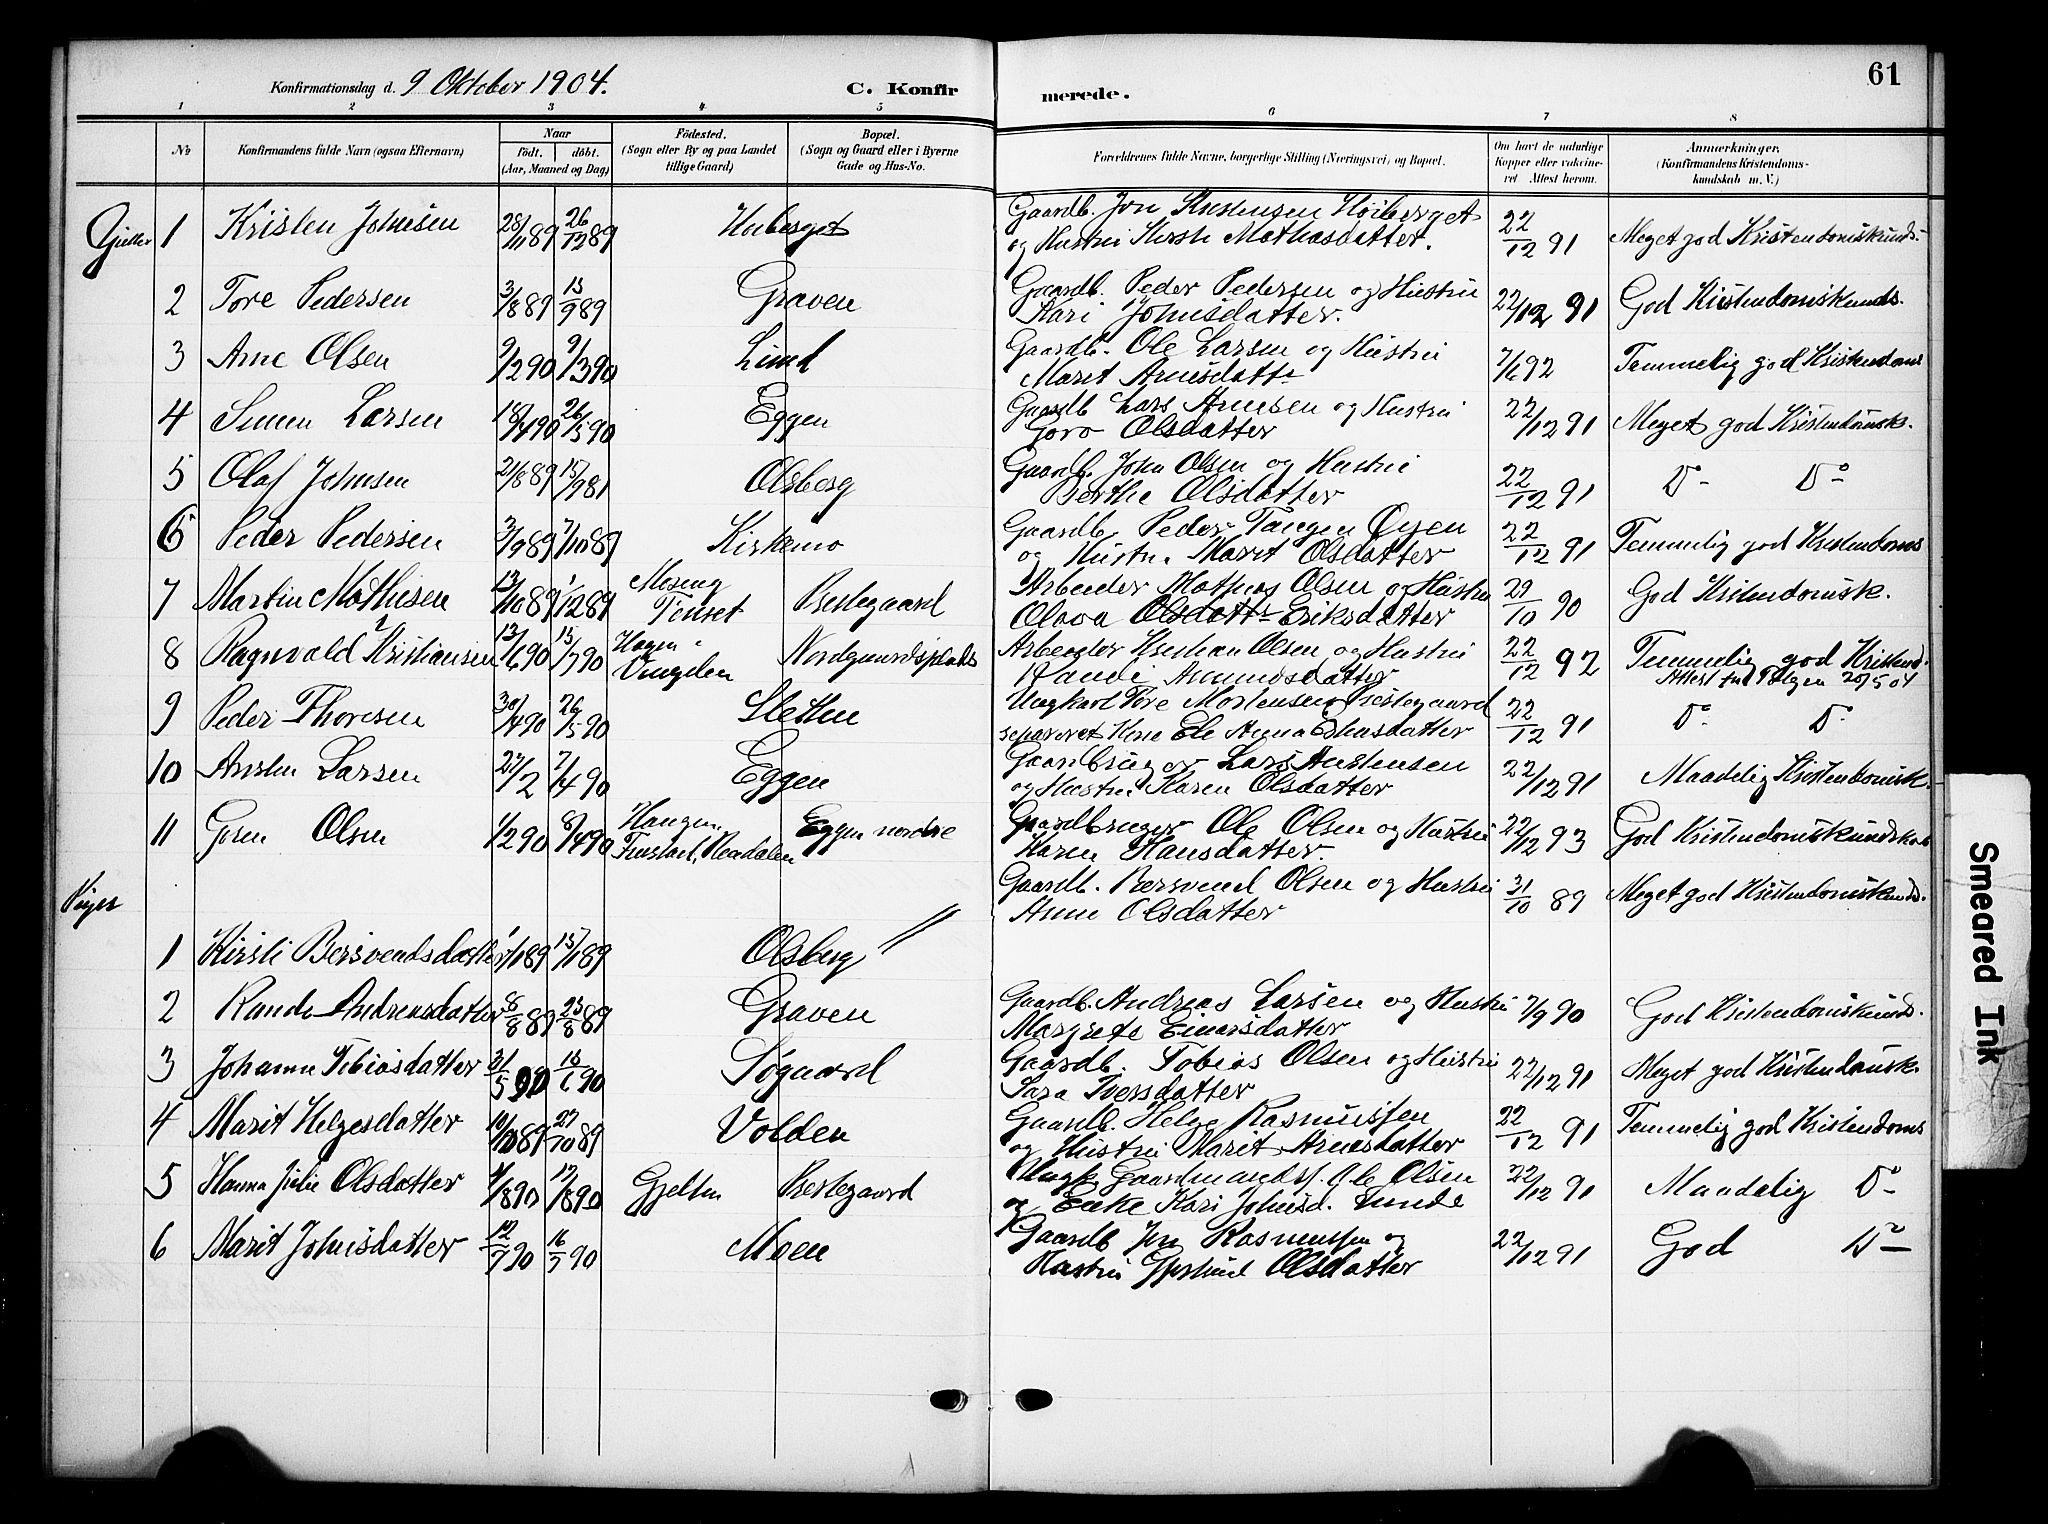 Konfirmationsdag d. 9 Oktober 1904.
C. Konfir
merede.
61
1 2 3 4 5 6 7 8
No
Konfirmandens fulde Navn (ogsaa Efternavn)
Naar
født. døbt.
(Aar, Maaned og Dag)
Fødested.
(Sogn eller By og paa Landet
tillige Gaard)
Bopæl.
(Sogn og Gaard eller i Byerne
Gade og Hus-No.
Forældrenes fulde Navne, borgerlige Stilling (Næringsvei) og Bopæl.
Om havt de naturlige
Kopper eller vaccine-
ret Attest herom.
Anmærkninger.
(Konfirmandens Kristendoms-
kundskab m. V.)
Gutter 1 Kristen Johnsen 28/11 89 26/12 89 Høiberget Gaardb. Jon Kristensen Høiberget
og Hustru Kirsti Mathasdatter. 22/12 91 Meget god Kristendomskunds.
2 Tore Pedersen 3/8 89 15/9 89 Graven Gaardb. Peder Pedersen og Hustru
Kari Johnsdatter. 22/12 91 God Kristendomskunds.
3 Arne Olsen 9/2 90 9/3 90 Lund Gaardb. Ole Larsen og Hustru
Marit Arnesdattr 7/6 92 Temmelig god Kristendoms
4 Simen Larsen 18/4 90 26/5 90 Eggen Gaardb Lars Arnesen og Hustru
Goro Olsdatter 22/12 91 Meget god Kristendomsk.
5 Olaf Johnsen 21/8 89 15/9 81 Olsberg Gaardb. John Olsen og Hustru
Berthe Olsdatter 22/12 91 Do Do
6 Peder Pedersen 3/9 89 7/10 89 Kirkemo Gaardb. Peder Tangen Øyen
og Hustru Marit Olsdatter 22/12 91 Temmelig god Kristendoms
7 Martin Mathisen 13/10 89 1/12 89 Moseng
Tønset Prestegaard Arbeider Mathias Olsen og Hustru
Olava Olsdattr Eriksdatter 29/10 90 God Kristendomsk.
8 Ragnvald Kristiansen 13/6 90 13/7 90 Hagen
Vingelen Nordgaardsplads Arbeider Kristian Olsen og Hustru
Randi Amundsdatter 22/12 92 Temmelig god Kristend.
Attest fra Tolgen 20/5 04
9 Peder Thoresen 30/4 90 26/5 90 Sletten Ungkarl Tore Mortensen Prestegaard
separeret Kone Ele Anna Estensdatter 22/12 91 Do Do
10 Aristen Larsen 27/2 7/4 90 Eggen Gaardbruger Lars Austensen
og Hustru Karen Olsdatter 22/12 91 Maadelig Kristendomsk.
11 Goren Olsen 1/2 90 8/4 90 Haugen
Rendalen Eggen nordre Gaardbruger Ole Olsen og Hustru
Karen Hansdatter. 22/12 93 God Kristendomskundskab
Piger Gaardb. Bersvend Olsen og Hustru
Anne Olsdatter 31/10 89 Meget god Kristendomskunds.
1 Kirsti Bersvendsdatter 1/1 89 15/1 89 Olsberg //
2 Randi Andreasdatter 8/8 89 25/8 89 Graven Gaardb. Andreas Larsen og Hustru
Margrete Einarsdatter 7/9 90 God Kristendomskunds.
3 Johanne Tobiasdatter 31/5 90 18/6 90 Søgaard Gaardb. Tobias Olsen og Hustru
Sara Iversdatter 22/12 91 Meget god Kristendomsk.
4 Marit Helgesdatter 10/10 89 27/10 89 Volden Gaardb. Helge Rasmussen
og Hustru Marit Arnesdatter 22/12 91 Temmelig god Kristendoms
5 Hanna Julie Olsdatter 4/8 90 17/8 90 Gjelten Prestegaard Ungk. Gaardmands. Ole Olsen
og Enke Kari Johnsd. Lunde 22/12 91 Maadelig Do
6 Marit Johnsdatter 12/7 90 16/7 90 Moen Gaardb Jon Rasmussen og
Hustru Gjertrud Olsdatter 22/12 91 God Do
Smeared Ink